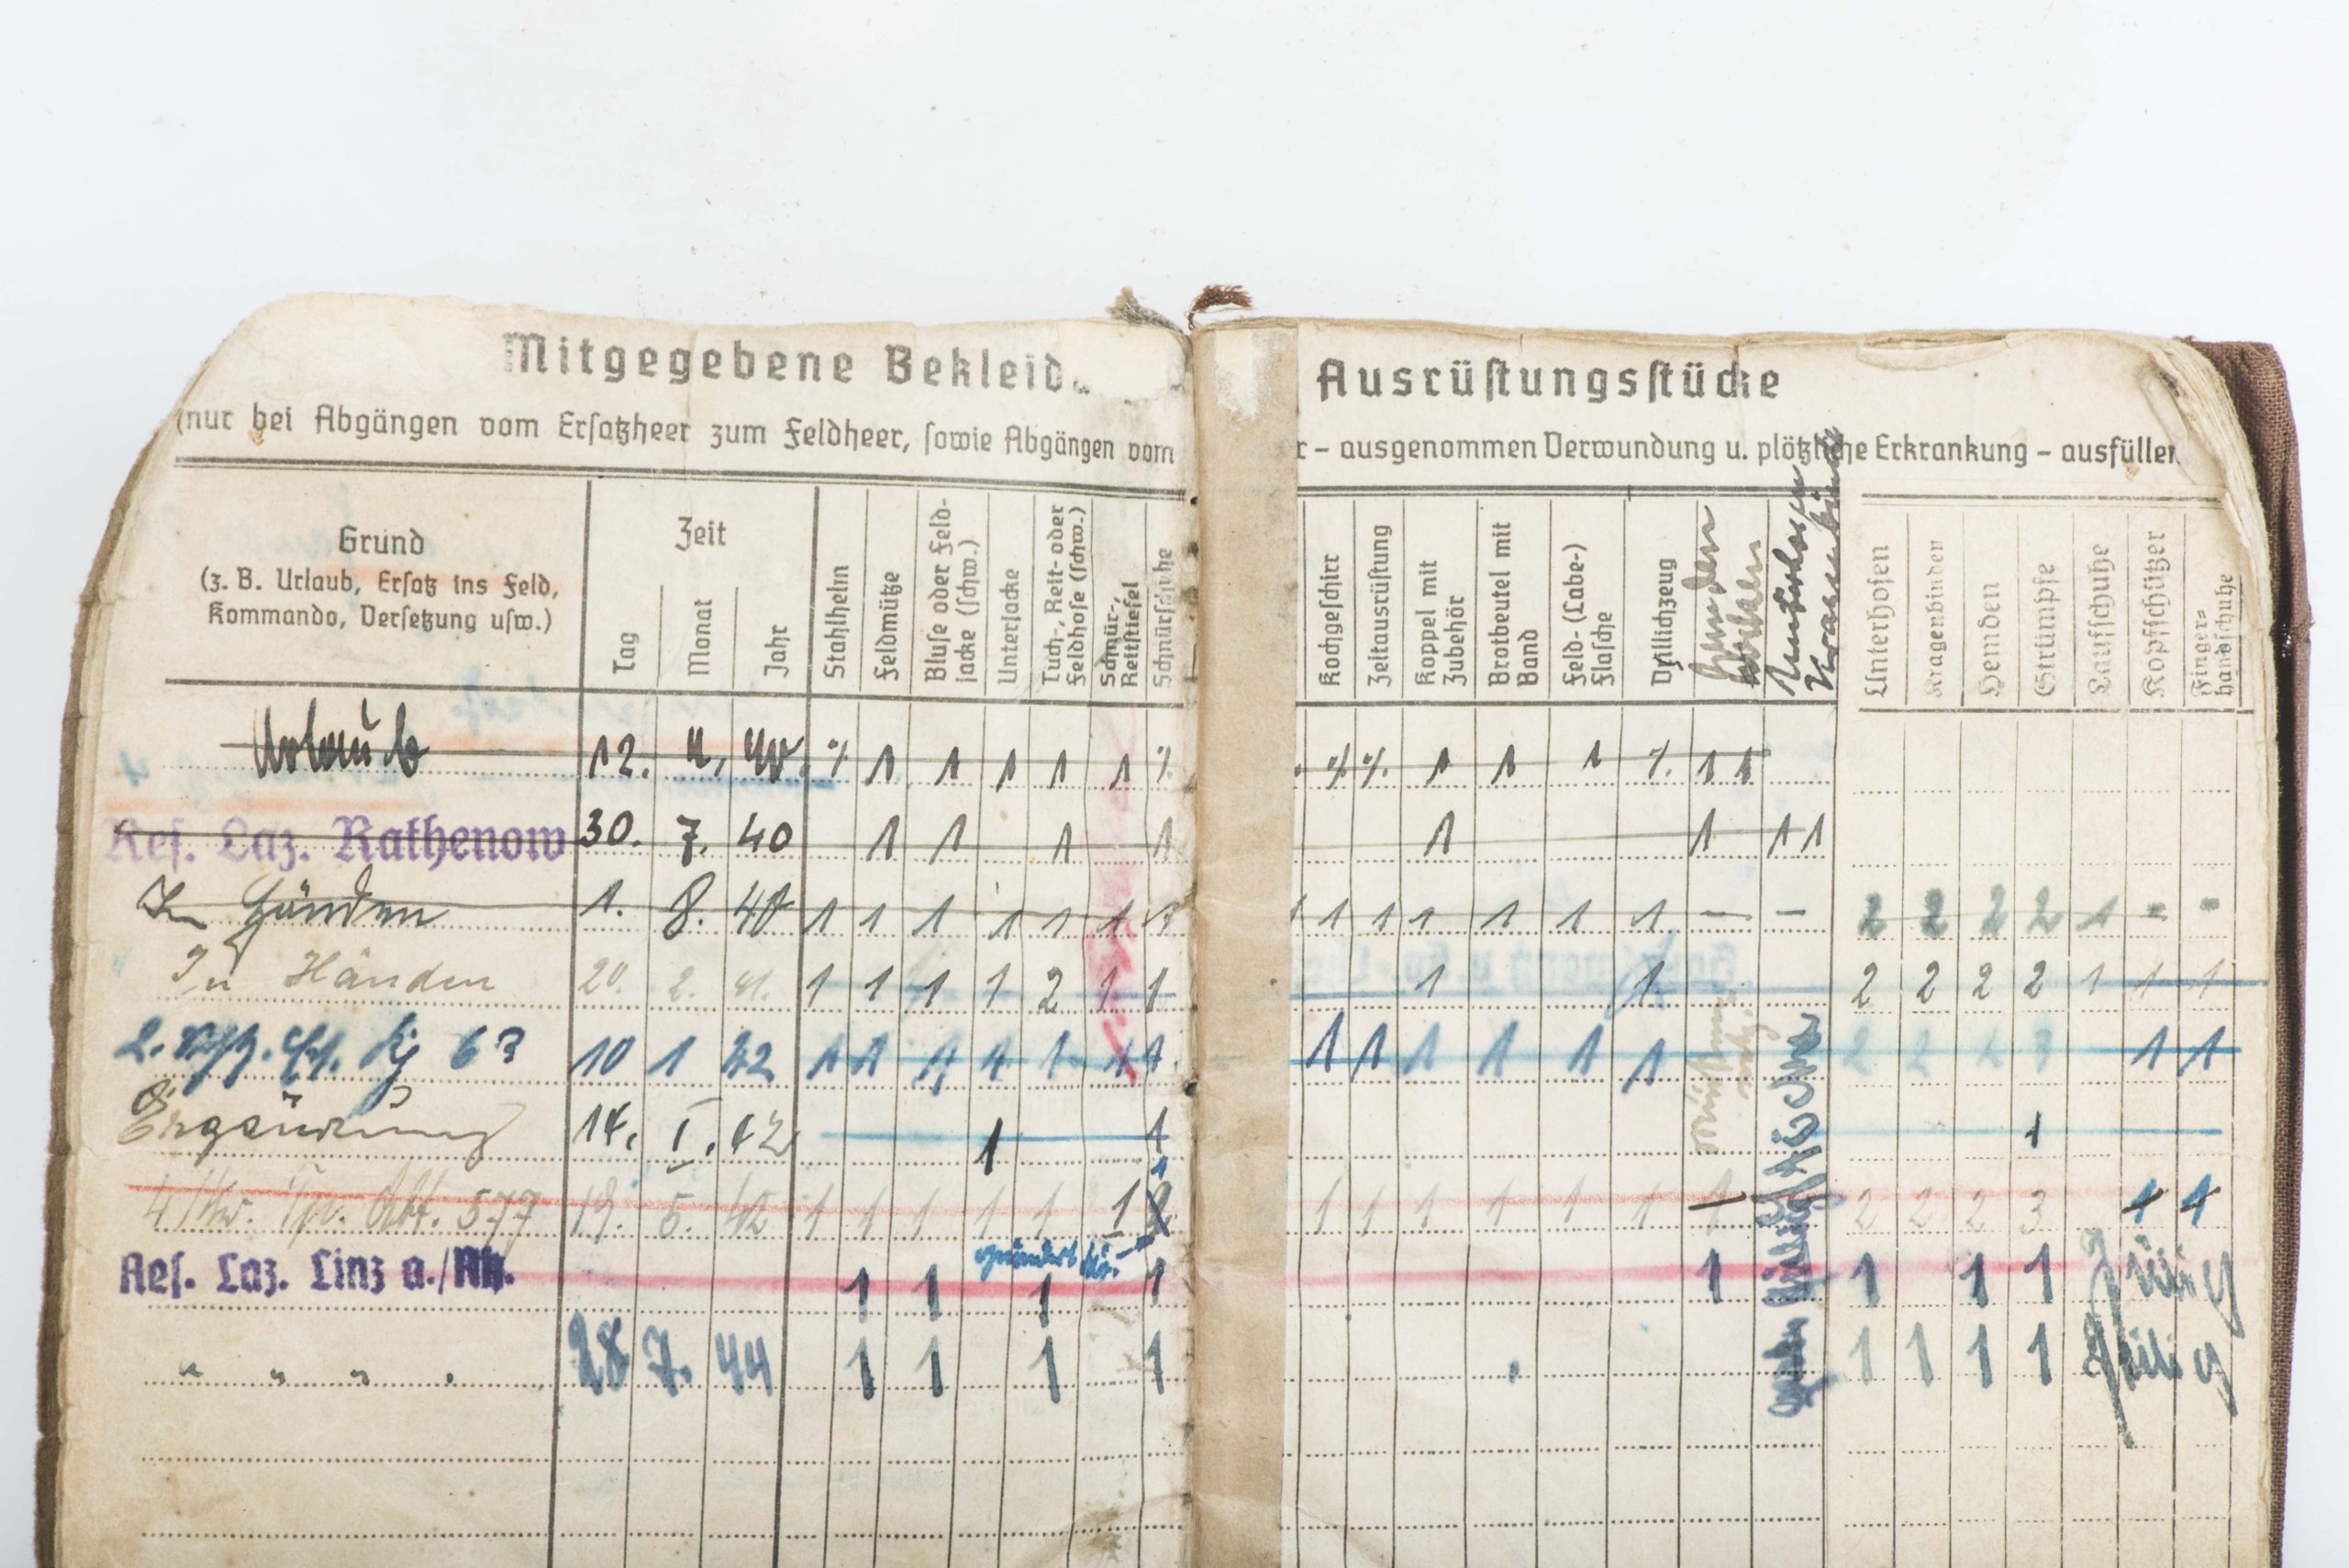 Mitgegebene Ausrüstungsstücke
(nur bei Abgängen vom Ersatzheer zum Feldheer, sowie Abgängen vom – ausgenommen Verwundung u. plötzliche Erkrankung – ausfüllen
Grund
(z. B. Urlaub, Ersatz ins Feld,
Kommando, Versetzung usw.)
Zeit
Tag
Monat
Jahr
Stahlhelm
Feldmütze
Bluse oder Feld-
jacke (schw.)
Unterjacke
Tuch-, Reit- oder
Feldhose (schw.)
Schnür-,
Reitstiefel
Schnürschuhe
Kochgeschirr
Zeltausrüstung
Koppel mit
Zubehör
Brotbeutel mit
Band
Feld- (Labe-)
flasche
Drillichzeug
Hemden
Unterhosen
Kragenbinde
Unterhosen
Kragenbinden
Hemden
Strümpfe
Laufschuhe
Kopfschützer
Finger-
handschuhe
Urlaub 12. 4. 40. % 1 1 1 1 1 % % % 1 1 1 % 1 1
Res. Laz. Rathenow 30. 7. 40 1 1 1 1 1 1 1 1
In Händen 1. 8. 40 1 1 1 1 1 1 1 1 1 1 1 1 – – 2 2 2 2 1 - -
In Händen 20. 2. 41. 1 1 1 1 2 1 1 1 1 2 2 2 2 1 1 1
10 1 42 1 1 1 1 1 1 1 1 1 1 1 1 1 2 2 1 1
Ergänzung 14. I. 42 1 1 1
Abt. 577 19. 5. 42 1 1 1 1 1 1 1 1 1 1 1 1 1 2 2 2 3 1 1
Res. Laz. Linz a./Rh. 1 1 1 1 1 1 1 1
" " " " 28 7. 44 1 1 1 1 1 1 1 1